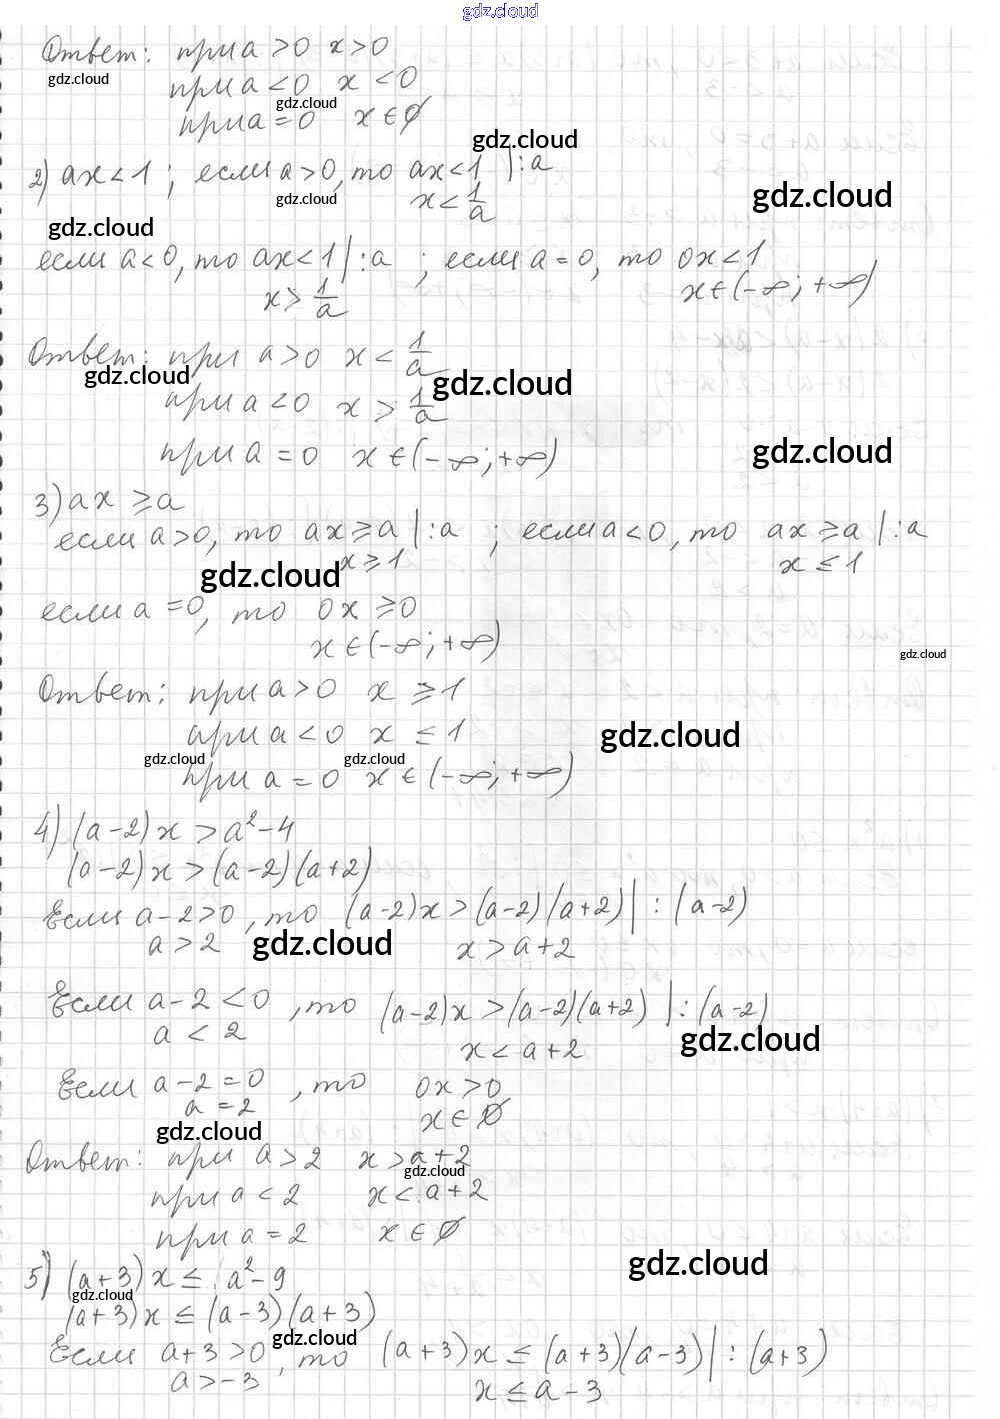 gdz.cloud
Ответ: при a > 0 x > 0
gdz.cloud
при a < 0 x < 0
gdz.cloud
при a = 0 x ∈ ∅
gdz.cloud
2) ax < 1 ; если a > 0, то ax < 1 | : a
gdz.cloud gdz.cloud
x < 1/a
gdz.cloud
если a < 0, то ax < 1 | : a ; если a = 0, то 0x < 1
x > 1/a x ∈ (-∞; +∞)
Ответ: при a > 0 x < 1/a
gdz.cloud gdz.cloud
при a < 0 x > 1/a
при a = 0 x ∈ (-∞; +∞)
gdz.cloud
3) ax ≥ a
если a > 0, то ax ≥ a | : a ; если a < 0, то ax ≥ a | : a
gdz.cloud
x ≥ 1 x ≤ 1
если a = 0, то 0x ≥ 0
x ∈ (-∞; +∞)
gdz.cloud
Ответ: при a > 0 x ≥ 1
при a < 0 x ≤ 1
gdz.cloud
gdz.cloud gdz.cloud
при a = 0 x ∈ (-∞; +∞)
4) (a-2)x > a² - 4
(a-2)x > (a-2)(a+2)
Если a-2 > 0, то (a-2)x > (a-2)(a+2) | : (a-2)
a > 2 x > a+2
gdz.cloud
Если a-2 < 0, то (a-2)x > (a-2)(a+2) | : (a-2)
a < 2 x < a+2
gdz.cloud
Если a-2 = 0, то 0x > 0
a = 2 x ∈ ∅
gdz.cloud
Ответ: при a > 2 x > a+2
gdz.cloud
при a < 2 x < a+2
при a = 2 x ∈ ∅
gdz.cloud
5) (a+3)x ≤ a² - 9
gdz.cloud
(a+3)x ≤ (a-3)(a+3)
gdz.cloud
Если a+3 > 0, то (a+3)x ≤ (a+3)(a-3) | : (a+3)
a > -3 x ≤ a-3